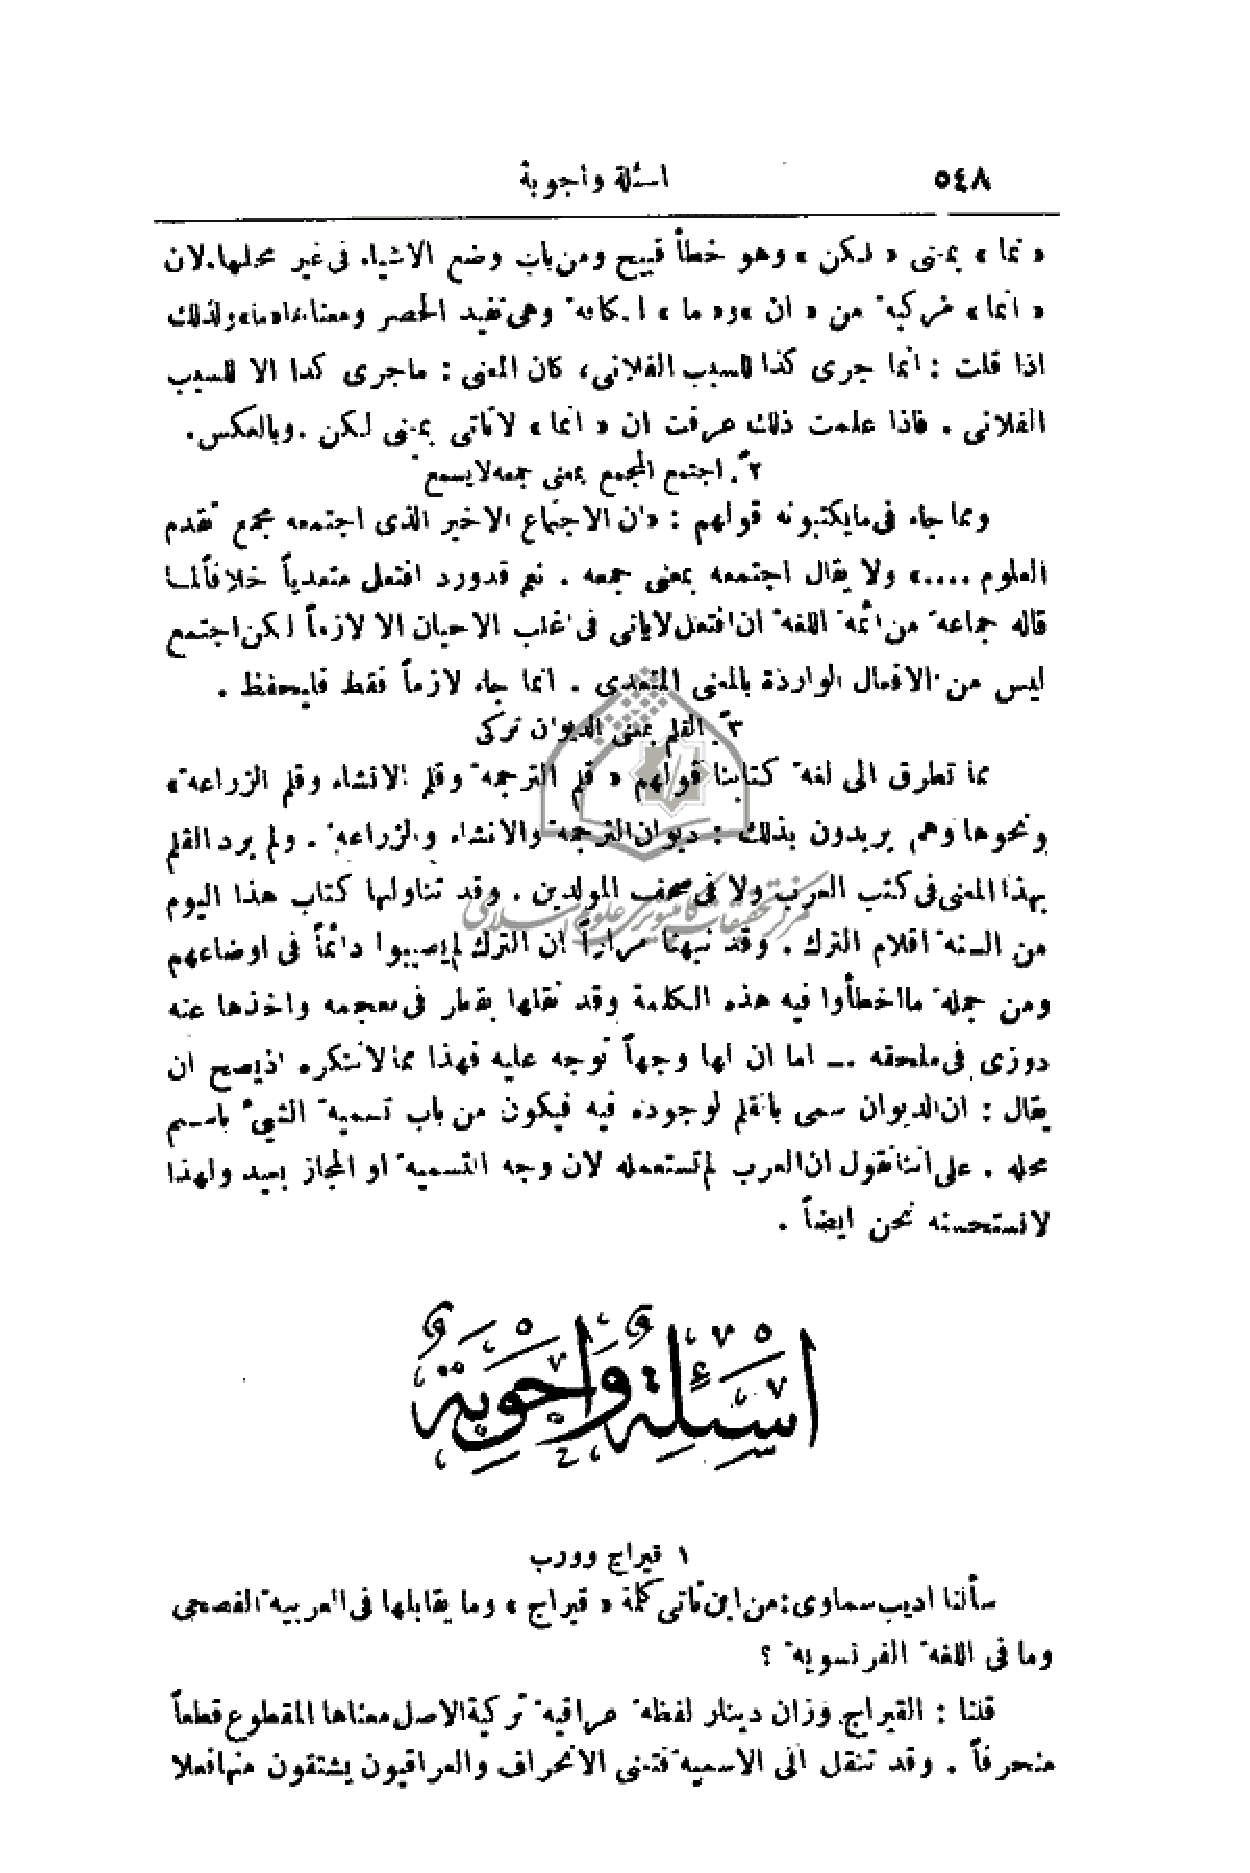 ٥٤٨ اسئلة واجوبة
« نما » بمعنى « لكن » وهو خطأ قبيح ومن باب وضع الاشياء فى غير محلها. لان
« انما » مركبة من « ان » و« ما » الكافة وهى تفيد الحصر ومعناها «ما» ولذلك
اذا قلت : انما جرى كذا للسبب الفلانى ، كان المعنى : ماجرى كذا الا للسبب
الفلانى . فاذا علمت ذلك عرفت ان « انما » لاتأتى بمعنى لكن . وبالعكس .
٢ً. اجتمع المجمع بمعنى جمعه لا يسمع
ومما جاء فى مايكتبونه قولهم : «ان الاجتماع الاخير الذى اجتمعه مجمع تقدم
العلوم ....» ولا يقال اجتمعه بمعنى جمعه . نعم قدورد افتعل متعدياً خلافاً لما
قاله جماعة من ائمة اللغة ان افتعل لايأتى فى اغلب الاحيان الا لازماً لكن اجتمع
ليس من الافعال الواردة بالمعنى المتعدى . انما جاء لازماً فقط فليحفظ .
٣ً. القلم بمعنى الديوان تركى
مما تطرق الى لغة كتابنا قولهم « قلم الترجمة وقلم الانشاء وقلم الزراعة »
ونحوها وهم يريدون بذلك : ديوان الترجمة والانشاء والزراعة . ولم يرد القلم
بهذا المعنى فى كتب العرب ولا فى صحف المولدين . وقد تناولها كتاب هذا اليوم
من السنة اقلام الترك . وقد نبهنا مراراً ان الترك لم يصيبوا دائماً فى اوضاعهم
ومن جملة مااخطأوا فيه هذه الكلمة وقد نقلها بقطر فى معجمه واخذها عنه
دوزى فى ملحقه ــ اما ان لها وجهاً توجه عليه فهذا مما لاننكره اذ يصح ان
يقال : ان الديوان سمى بالقلم لوجوده فيه فيكون من باب تسمية الشىء باسم
محله . على اننا نقول ان العرب لم تستعمله لان وجه التسمية او المجاز بعيد ولهذا
لانستحسنه نحن ايضاً .
اَسْئِلَةٌ وَاَجْوِبَةٌ
١ قيراج وورب
سألنا اديب سماوى : من اين تأتى كلمة « قيراج » وما يقابلها فى العربية الفصحى
وما فى اللغة الفرنسوية ؟
قلنا : القيراج وزان دينار لفظة عراقية تركية الاصل معناها المقطوع قطعاً
منحرفاً . وقد تنقل الى الاسمية فتعنى الانحراف والعراقيون يشتقون منها فعلا
مركز تحقيقات كامپيوترى علوم اسلامى